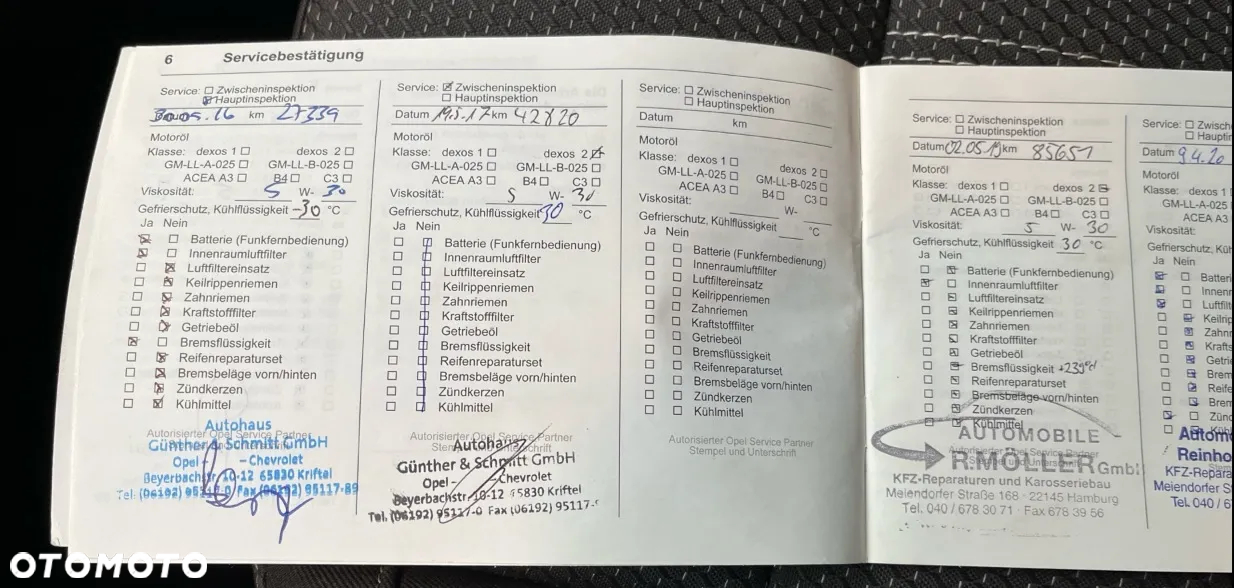 6 Servicebestätigung
Service: Zwischeninspektion
Hauptinspektion
Datum 30.05.16 km 27339
Motoröl
Klasse: dexos 1 dexos 2
GM-LL-A-025 GM-LL-B-025
ACEA A3 B4 C3
Viskosität: 5 W- 30
Gefrierschutz, Kühlflüssigkeit -30 °C
Ja Nein
Batterie (Funkfernbedienung)
Innenraumluftfilter
Luftfiltereinsatz
Keilrippenriemen
Zahnriemen
Kraftstofffilter
Getriebeöl
Bremsflüssigkeit
Reifenreparaturset
Bremsbeläge vorn/hinten
Zündkerzen
Kühlmittel
Autorisierter Opel Service Partner
Autohaus
Günther & Schmitt GmbH
Opel - - Chevrolet
Beyerbachstr. 10-12 65830 Kriftel
Tel: (06192) 95117-0 Fax (06192) 95117-89
Service: Zwischeninspektion
Hauptinspektion
Datum 19.5.17 km 42820
Motoröl
Klasse: dexos 1 dexos 2
GM-LL-A-025 GM-LL-B-025
ACEA A3 B4 C3
Viskosität: 5 W- 30
Gefrierschutz, Kühlflüssigkeit 30 °C
Ja Nein
Batterie (Funkfernbedienung)
Innenraumluftfilter
Luftfiltereinsatz
Keilrippenriemen
Zahnriemen
Kraftstofffilter
Getriebeöl
Bremsflüssigkeit
Reifenreparaturset
Bremsbeläge vorn/hinten
Zündkerzen
Kühlmittel
Autorisierter Opel Service Partner
Autohaus
Günther & Schmitt GmbH
Opel - - Chevrolet
Beyerbachstr. 10-12 65830 Kriftel
Tel. (06192) 95117-0 Fax (06192) 95117-
Service: Zwischeninspektion
Hauptinspektion
Datum km
Motoröl
Klasse: dexos 1 dexos 2
GM-LL-A-025 GM-LL-B-025
ACEA A3 B4 C3
Viskosität: W-
Gefrierschutz, Kühlflüssigkeit °C
Ja Nein
Batterie (Funkfernbedienung)
Innenraumluftfilter
Luftfiltereinsatz
Keilrippenriemen
Zahnriemen
Kraftstofffilter
Getriebeöl
Bremsflüssigkeit
Reifenreparaturset
Bremsbeläge vorn/hinten
Zündkerzen
Kühlmittel
Autorisierter Opel Service Partner
Stempel und Unterschrift
Service: Zwischeninspektion
Hauptinspektion
Datum 02.05.19 km 85651
Motoröl
Klasse: dexos 1 dexos 2
GM-LL-A-025 GM-LL-B-025
ACEA A3 B4 C3
Viskosität: 5 W- 30
Gefrierschutz, Kühlflüssigkeit 30 °C
Ja Nein
Batterie (Funkfernbedienung)
Innenraumluftfilter
Luftfiltereinsatz
Keilrippenriemen
Zahnriemen
Kraftstofffilter
Getriebeöl
Bremsflüssigkeit
Reifenreparaturset
Bremsbeläge vorn/hinten
Zündkerzen
Kühlmittel
AUTOMOBILE
R.MÖLLER GmbH
KFZ-Reparaturen und Karosseriebau
Meiendorfer Straße 168 · 22145 Hamburg
Tel. 040 / 678 30 71 · Fax 678 39 56
Service: Zwisch
Haupti
Datum 9.4.20
Motoröl
Klasse: dexos 1
GM-LL-A-02
ACEA A3
Viskosität:
Gefrierschutz, Küh
Ja Nein
Batteri
Innenr
Luftfilt
Keilrip
Zahnr
Krafts
Getrie
Brem
Reife
Brem
Zünd
Automo
Reinho
KFZ-Repara
Meiendorfer St
Tel. 040 / 6
OTOMOTO